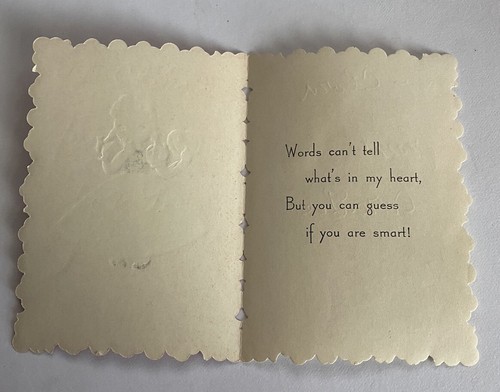 Words can't tell
what's in my heart,
But you can guess
if you are smart!